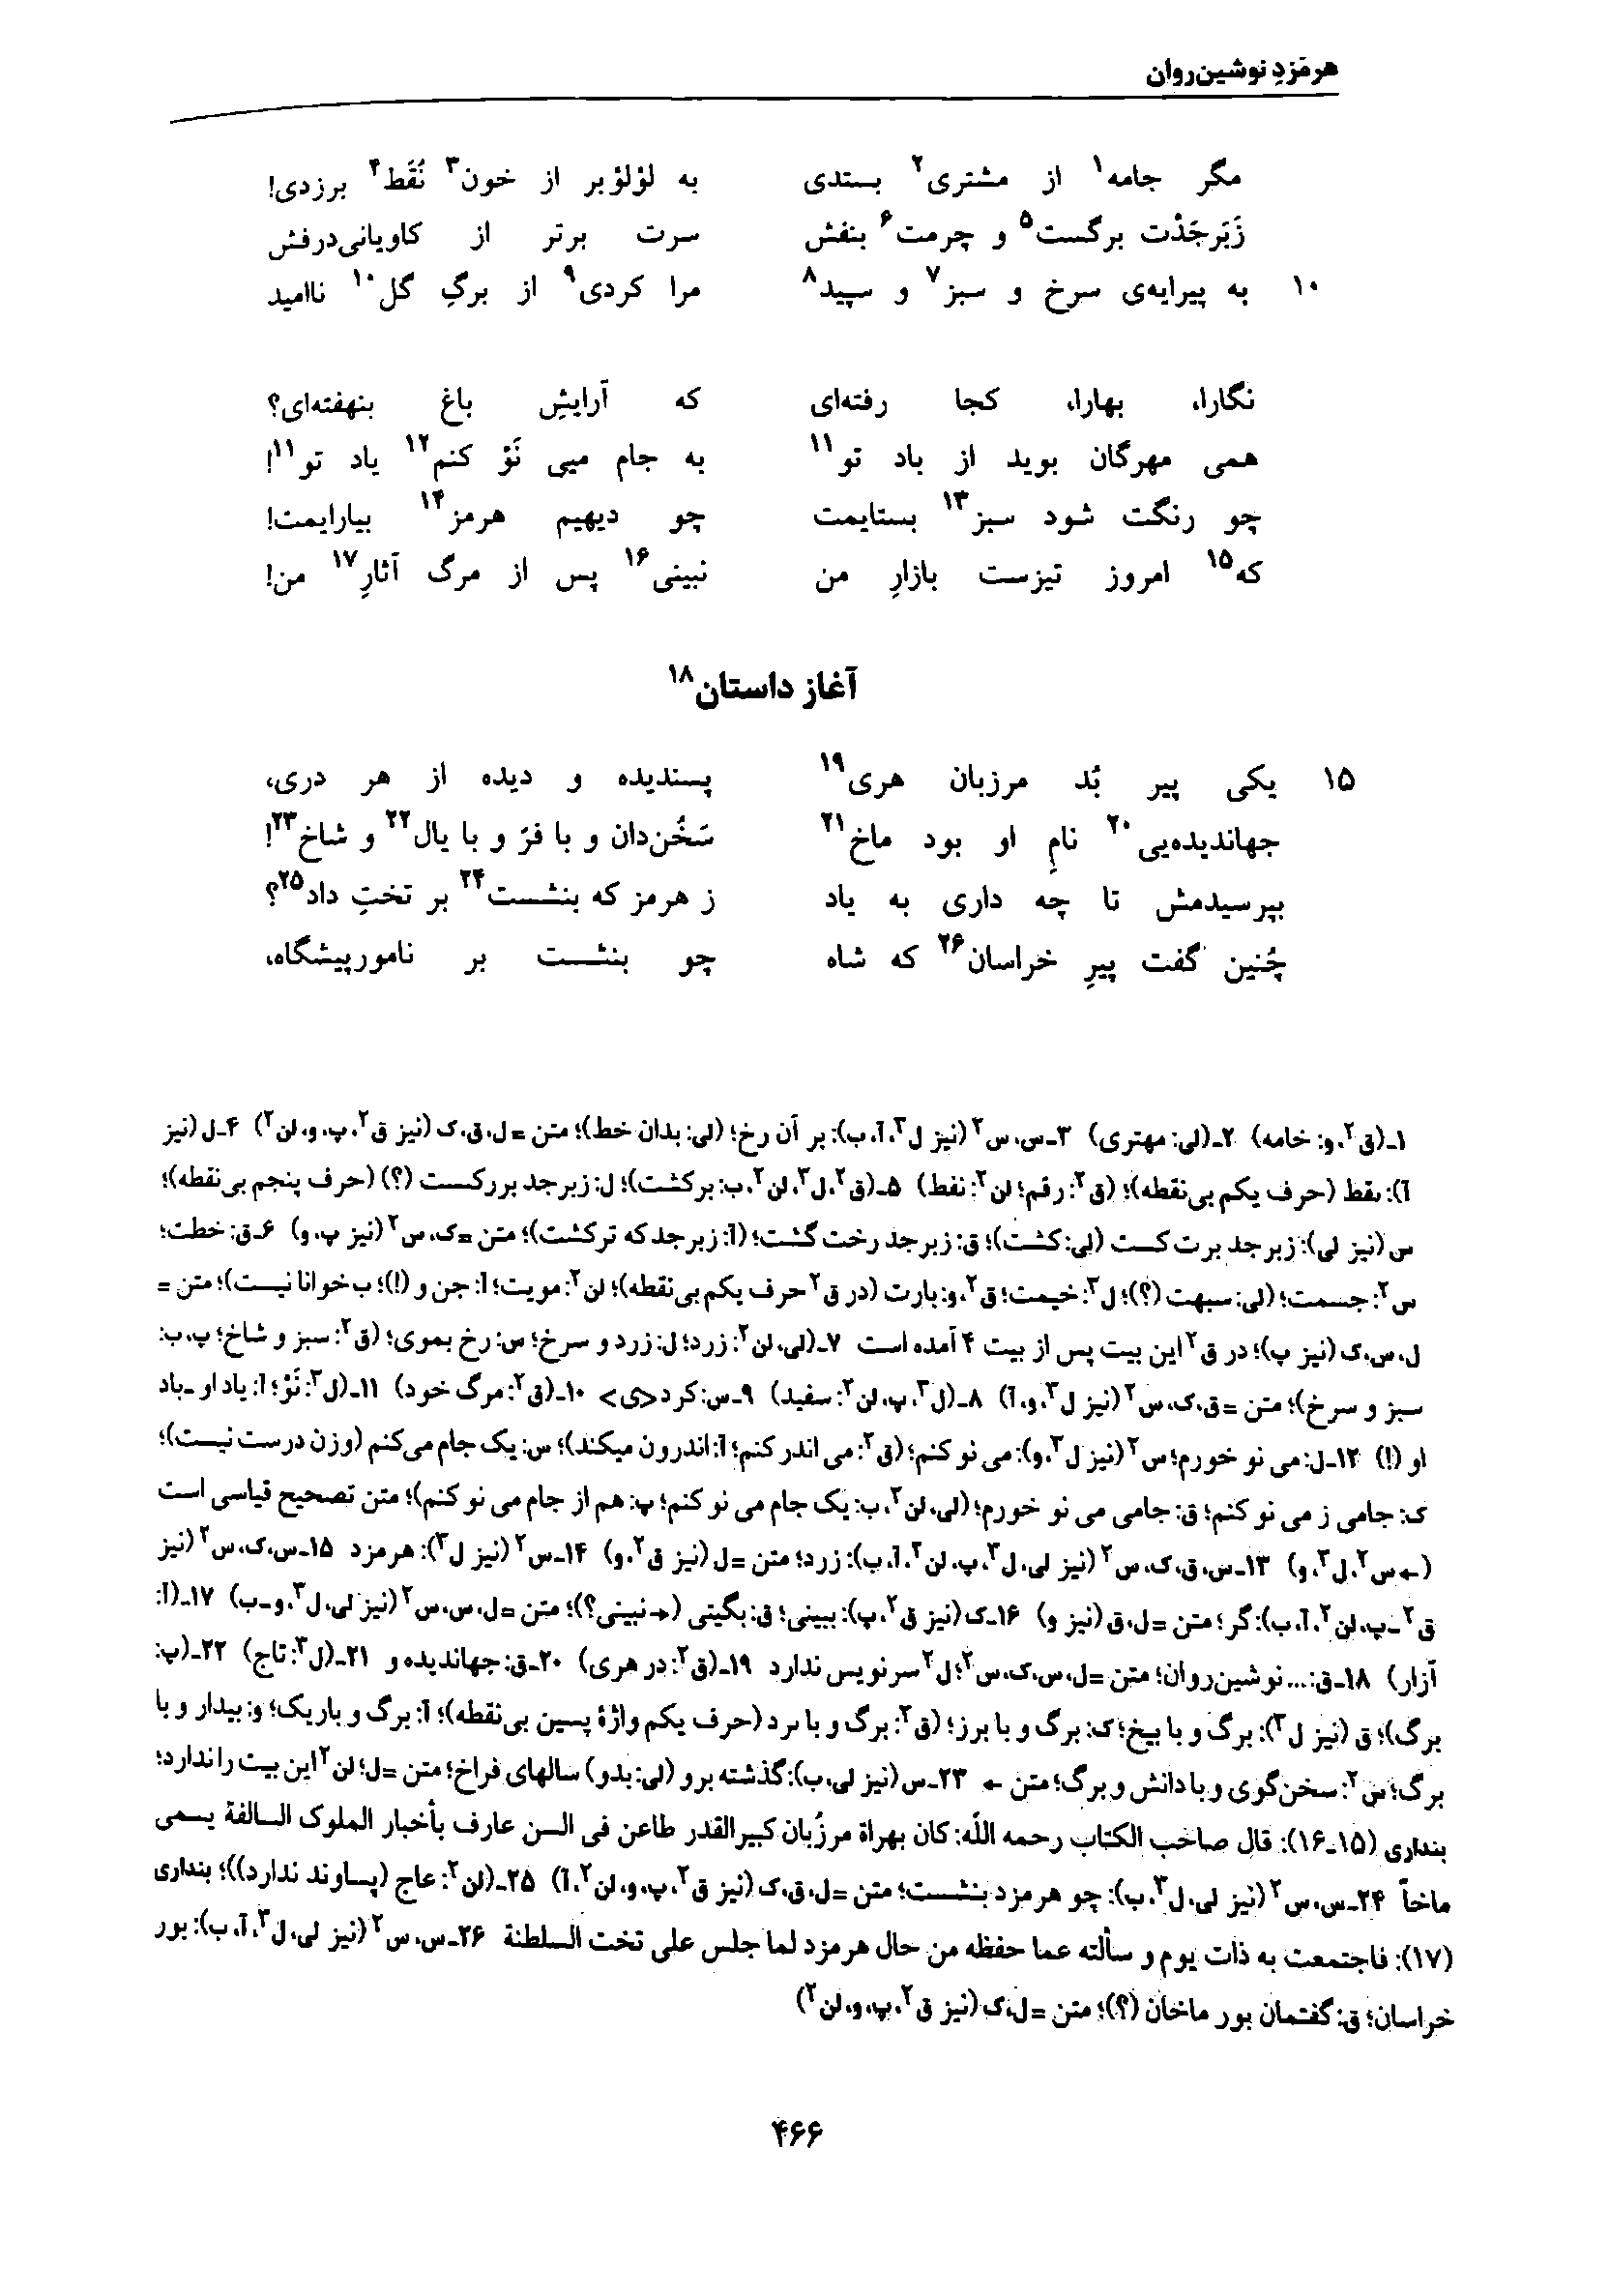 هرمَزدِ نوشین‌روان
مگر جامه۱ از مشتری۲ بستدی به لؤلؤبر از خون۳ نُقَط۴ برزدی!
زَبَرجَدْت برگست۵ و چرمت۶ بنفش سرت برتر از کاویانی‌درفش
۱۰ به پیرایه‌ی سرخ و سبز۷ و سپید۸ مرا کردی۹ از برگِ گل۱۰ ناامید
نگارا، بهارا، کجا رفته‌ای که آرایشِ باغ بنهفته‌ای؟
همی مهرگان بوید از باد تو۱۱ به جام میی نَوْ کنم۱۲ یاد تو۱۱!
چو رنگت شود سبز۱۳ بستایمت چو دیهیم هرمز۱۴ بیارایمت!
که۱۵ امروز تیزست بازارِ من نبینی۱۶ پس از مرگ آثارِ۱۷ من!
آغاز داستان۱۸
۱۵ یکی پیر بُد مرزبان هری۱۹ پسندیده و دیده از هر دری،
جهاندیده‌یی۲۰ نامِ او بود ماخ۲۱ سَخُن‌دان و با فرّ و با یال۲۲ و شاخ۲۳!
بپرسیدمش تا چه داری به یاد ز هرمز که بنشست۲۴ بر تختِ داد۲۵؟
چُنین گفت پیرِ خراسان۲۶ که شاه چو بنشست بر نامورپیشگاه،
۱ـ(ق۲، و: خامه) ۲ـ(لی: مهتری) ۳ـس، س۲ (نیز ل۳، آ، ب): بر آن رخ؛ (لی: بدان خط)؛ متن = ل، ق، ک (نیز ق۲، پ، و، لن۲) ۴ـل (نیز
آ): ٮقط (حرف یکم بی‌نقطه)؛ (ق۲: رقم؛ لن۲: نفط) ۵ـ(ق۲، ل۳، لن۲، ب: برکشت)؛ ل: زبرجد بررکست (؟) (حرف پنجم بی‌نقطه)؛
س (نیز لی): زبرجد برت کست (لی: کشت)؛ ق: زبرجد رخت گشت؛ (آ: زبرجد که ترکشت)؛ متن = ک، س۲ (نیز پ، و) ۶ـق: خطت؛
س۲: جسمت؛ (لی: سبهت (؟)؛ ل۳: خیمت؛ ق۲، و: بارت (در ق۲ حرف یکم بی‌نقطه)؛ لن۲: مویت؛ آ: جن و (!)؛ ب خوانا نیست)؛ متن =
ل، س، ک (نیز پ)؛ در ق۲ این بیت پس از بیت ۴ آمده است ۷ـ(لی، لن۲: زرد؛ ل: زرد و سرخ؛ س: رخ بموی؛ (ق۲: سبز و شاخ؛ پ، ب:
سبز و سرخ)؛ متن = ق، ک، س۲ (نیز ل۳، و، آ) ۸ـ(ل۳، پ، لن۲: سفید) ۹ـس: کرد<ی> ۱۰ـ(ق۲: مرگ خود) ۱۱ـ(ل۳: نَوْ؛ آ: یاد او ـ باد
او (!) ۱۲ـل: می نو خورم؛ س۲ (نیز ل۳، و): می نو کنم؛ (ق۲: می اندر کنم؛ آ: اندرون میکند)؛ س: یک جام می‌کنم (وزن درست نیست)؛
ک: جامی ز می نو کنم؛ ق: جامی می نو خورم؛ (لی، لن۲، ب: یک جام می نو کنم؛ پ: هم از جام می نو کنم)؛ متن تصحیح قیاسی است
(←س۲، ل۳، و) ۱۳ـس، ق، ک، س۲ (نیز لی، ل۳، پ، لن۲، آ، ب): زرد؛ متن = ل (نیز ق۲، و) ۱۴ـس۲ (نیز ل۳): هرمزد ۱۵ـس، ک، س۲ (نیز
ق۲ـپ، لن۲، آ، ب): گر؛ متن = ل، ق (نیز و) ۱۶ـک (نیز ق۲، پ): ببینی؛ ق: بگیتی (→نبینی؟)؛ متن = ل، س، س۲ (نیز لی، ل۳، وـب) ۱۷ـ(آ:
آزار) ۱۸ـق: ... نوشین‌روان؛ متن = ل، س، ک، س۲؛ ل۲ سرنویس ندارد ۱۹ـ(ق۲: در هری) ۲۰ـق: جهاندیده و ۲۱ـ(ل۳: تاج) ۲۲ـ(پ:
برگ)؛ ق (نیز ل۳): برگ و با بیخ؛ ک: برگ و با برز؛ (ق۲: برگ و با ٮرد (حرف یکم واژهٔ پسین بی‌نقطه)؛ آ: برگ و باریک؛ و: بیدار و با
برگ؛ س۲: سخن‌گوی و با دانش و برگ؛ متن ← ۲۳ـس (نیز لی، ب): گذشته برو (لی: بدو) سالهای فراخ؛ متن = ل؛ لن۲ این بیت را ندارد؛
بنداری (۱۵ـ۱۶): قال صاحب الکتاب رحمه اللّه: کان بهراة مرزُبان کبیرالقدر طاعن فی السن عارف بأخبار الملوک السالفة یسمی
ماخاً ۲۴ـس، س۲ (نیز لی، ل۳، ب): چو هرمزد بنشست؛ متن = ل، ق، ک (نیز ق۲، پ، و، لن۲، آ) ۲۵ـ(لن۲: عاج (پساوند ندارد))؛ بنداری
(۱۷): فاجتمعت به ذات یوم و سألته عما حفظه من حال هرمزد لما جلس علی تخت السلطنة ۲۶ـس، س۲ (نیز لی، ل۳، آ، ب): بور
خراسان؛ ق: گفتمان بور ماخان (؟)؛ متن = ل، ک (نیز ق۲، پ، و، لن۲)
۴۶۶